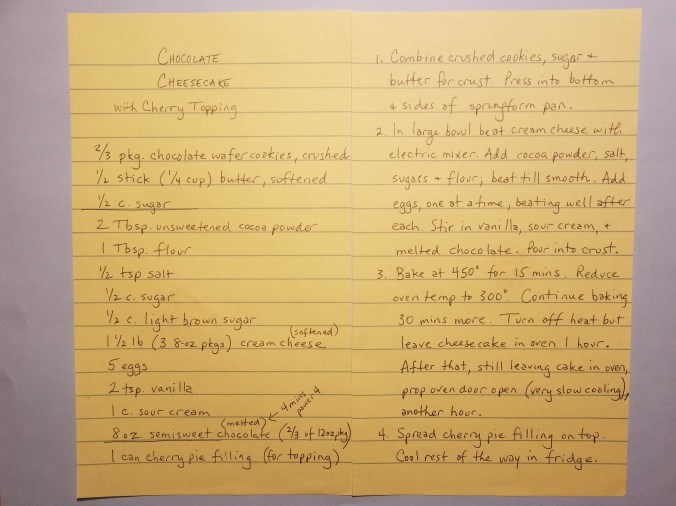 CHOCOLATE
CHEESECAKE
with Cherry Topping
2/3 pkg. chocolate wafer cookies, crushed
1/2 stick (1/4 cup) butter, softened
1/2 c. sugar
2 Tbsp. unsweetened cocoa powder
1 Tbsp. flour
1/2 tsp salt
1/2 c. sugar
1/2 c. light brown sugar
(softened)
1 1/2 lb (3 8-oz pkgs) cream cheese
5 eggs
2 tsp. vanilla
1 c. sour cream
(melted) ← 4 mins power 4
8 oz. semisweet chocolate (2/3 of 12oz pkg)
1 can cherry pie filling (for topping)
1. Combine crushed cookies, sugar +
butter for crust. Press into bottom
+ sides of springform pan.
2. In large bowl beat cream cheese with
electric mixer. Add cocoa powder, salt,
sugars + flour; beat till smooth. Add
eggs, one at a time, beating well after
each. Stir in vanilla, sour cream, +
melted chocolate. Pour into crust.
3. Bake at 450° for 15 mins. Reduce
oven temp to 300°. Continue baking
30 mins more. Turn off heat but
leave cheesecake in oven 1 hour.
After that, still leaving cake in oven,
prop oven door open (very slow cooling),
another hour.
4. Spread cherry pie filling on top.
Cool rest of the way in fridge.